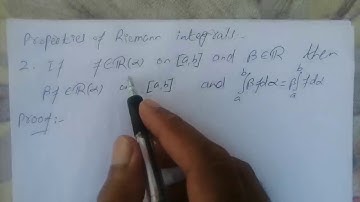 Properties of Riemann integrals.
2. If f∈R(α) on [a,b] and β∈R then
βf∈R(α) on [a,b] and ∫ₐᵇβfdα=β∫ₐᵇfdα
Proof:-